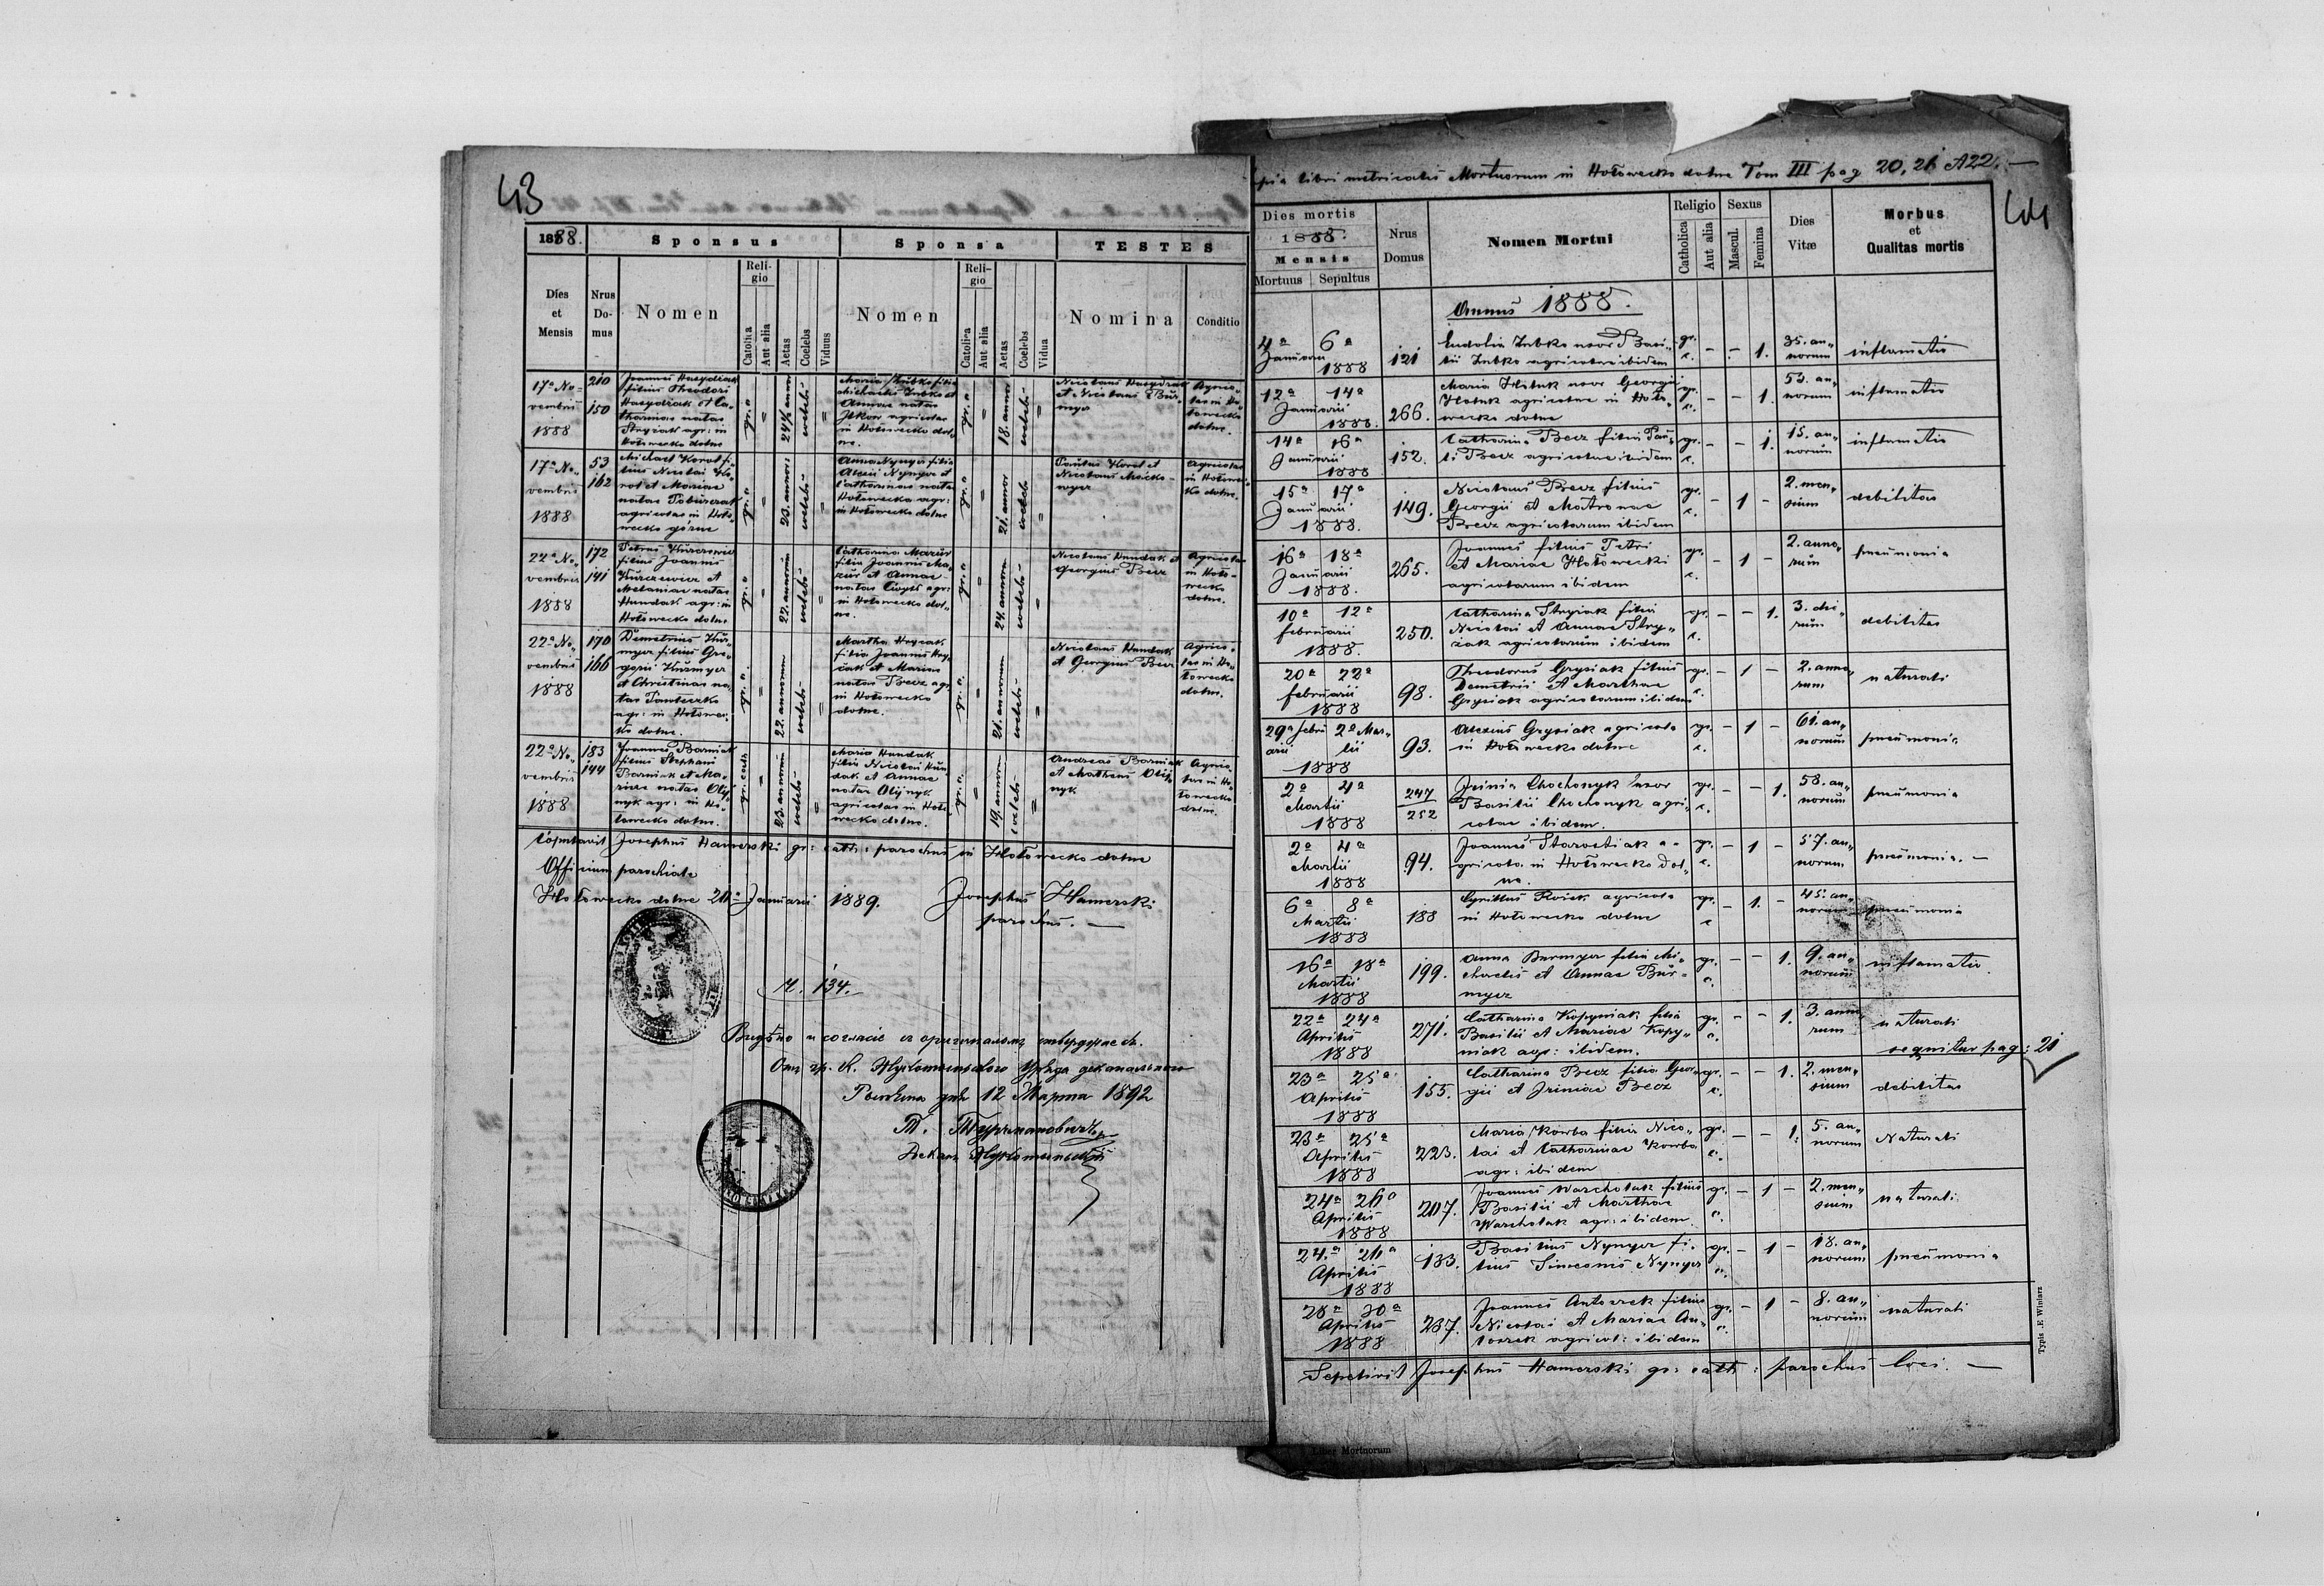 43
1888.
Sponsus
Sponsa
TESTES
Dies et Mensis
Nrus Do-mus
Nomen
Religio
Catolica
Aut alia
Aetas
Coelebs
Viduus
Nomen
Religio
Catolica
Aut alia
Aetas
Coelebs
Vidua
Nomina
Conditio
17a No-
vembris
1888
210
150
Joannes Hasydiak
filius Theodori
Hasydiak et Ca-
tharinae natae
Stryiak agr: in
Hołowecko dolne
24½ annor
coelebs
Maria Zubko filia
Michaelis Zubko et
Annae natae
Ilkow agricolar
in Hołowecko dol-
ne.
18. annor
coelebs
Nicolaus Hasydiak
et Nicolaus Bur-
myer
Agrico-
lae in Ho-
łowecko
dolne.
17a No-
vembris
1888
53
162
Michael Korol fi-
lius Nicolai Ko-
rol et Mariae
natae
agricolae in Hoło-
wecko górne
23. annor:
coelebs
Anna Nynyer filia
Alexii Nynyer et
Catharinae natae
Hołowecka agr:
in Hołowecko dolne
21. annor
coelebs
Paulus Korol et
Nicolaus
Agricolae
in Hołowec-
ko dolne.
22a No-
vembris
1888
172
141
Petrus Kurczewicz
filius Joannis
Kurczewicz et
Melaniae natae
Hundak agr: in
Hołowecko dolne
22. annorum
coelebs
Catharina Mazur
filia Joannis Ma-
zur et Annae
natae
in Hołowecko dol-
ne.
24. annorum
coelebs
Nicolaus Hundak et
Georgius Becz
Agricolae
in Hoło-
wecko
dolne.
22a No-
vembris
1888
170
166
Demetrius
filius Gre-
gorii
et Christinae na-
tae
agr: in Hołowec-
ko dolne.
22. annorum
coelebs
Martha Hryciak
filia Joannis Hry-
ciak et Mariae
natae Becz agr.
in Hołowecko
dolne.
21. annorum
coelebs
Nicolaus Hundak
et Georgius Becz
Agrico-
lae in Ho-
łowecko
dolne.
22a No-
vembris
1888
183
144
Joannes Barniak
filius Stephani
Barniak et Ma-
riae natae Olij-
nyk agr: in Ho-
łowecko dolne.
gr. cath
23. annorum
coelebs
Maria Hundak
filia Nicolai Hun-
dak et Annae
natae Olijnyk
agricolae in Hoło-
wecko dolne.
19. annor
coelebs
Andreas Barniak
et Matheus Olij-
nyk
Agrico-
lae in Ho-
łowecko
dolne.
Copulavit Josephus Hamerski gr: cath: parochus in Hołowecko dolne
Officium parochiale
Hołowecko dolne 20a Januarii 1889.
Josephus Hamerski
parochus. —
N. 134.
Видѣно и согласіе съ оригиналомъ
12 Марта 1892
copia libri metricalis Mortuorum in Hołowecko dolne Tom III pag 20, 21 & 22. —
44
Dies mortis
1888.
Mensis
Mortuus
Sepultus
Nrus Domus
Nomen Mortui
Religio
Catholica
Aut alia
Sexus
Mascul.
Femina
Dies Vitæ
Morbus et Qualitas mortis
Annus 1888.
4a 6a
Januarii
1888
121
Eudokia Zubko uxor Basi-
lii Zubko agricolae ibidem
gr. c. – – 1.
35. an-
norum
inflamatio
12a 14a
Januarii
1888.
266.
Maria uxor Georgii
agricolae in Hoło-
wecko dolne
gr. c. – – 1.
53. an-
norum
inflamatio
14a 16a
Januarii
1888
152.
Catharina Becz filia Pau-
li Becz agricolae ibidem
gr. c. – – 1.
15. an-
norum
inflamatio
15a 17a
Januarii
1888.
149.
Nicolaus Becz filius
Georgii et Matronae
Becz agricolarum ibidem
gr. c. – 1 –
2. men-
sium
debilitas
16a 18a
Januarii
1888.
265.
Joannes filius Petri
et Mariae Hołowecki
agricolarum ibidem
gr. c. – 1 –
2. anno-
rum
pneumonia
10a 12a
februarii
1888.
250.
Catharina Stryiak filia
Nicolai et Annae Stry-
iak agricolarum ibidem
gr. c. – – 1.
3. die-
rum
debilitas
20a 22a
februarii
1888
98.
Theodorus Grysiak filius
Demetrii et Marthae
Grysiak agricolarum ibidem
gr. c. – 1 –
2. anno-
rum
naturali
29a febru-
arii
2a Mar-
tii
1888
93.
Alexius Grysiak agricola
in Hołowecko dolne
gr. c. – 1 –
61. an-
norum
pneumonia
2a 4a
Martii
1888
247
252
Irinia Chochonyk uxor
Basilii Chochonyk agri-
colae ibidem.
gr. c. – – 1.
58. an-
norum
pneumonia
2a 4a
Martii
1888
94.
Joannes Starostiak a-
gricola in Hołowecko dol-
ne.
gr. c. – 1 –
57. an-
norum
pneumonia. —
6a 8a
Martii
1888
188
Cyrillus agricola
in Hołowecko dolne
gr. c – 1. –
45. an-
norum
pneumonia
16a 18a
Martii
1888
199.
Anna Burmyer filia Mi-
chaelis et Annae Bur-
myer
gr. c. – – 1.
9. an-
norum
inflamatio.
22a 24a
Aprilis
1888
271.
Catharina Kopyniak filia
Basilii et Mariae Kopy-
niak agr: ibidem.
gr. c. – – 1.
3. anno-
rum
naturali
sequitur pag: 21
23a 25a
Aprilis
1888
155.
Catharina Becz filia Geor-
gii et Iriniae Becz
gr. c. – – 1.
2. men-
sium
debilitas
23a 25a
Aprilis
1888
223.
Maria Kowba filia Nico-
lai et Catharinae Kowba
agr: ibidem
gr. c. – – 1.
5. an-
norum
Naturali
24a 26a
Aprilis
1888
207.
Joannes Warcholak filius
Basilii et Marthae
Warcholak agr: ibidem
gr. c. – 1 –
2. men-
sium
naturali
24.a 26a
Aprilis
1888
133.
Basilius Nynyer fi-
lius Simeonis Nynyer
gr. c. – 1 –
18. an-
norum
pneumonia
28a 30a
Aprilis
1888
237.
Joannes Antoszek filius
Nicolai et Mariae An-
toszek agricol: ibidem
gr. c. – 1 –
8. an-
norum
naturali
Sepelivit Josephus Hamerski gr: cath: parochus loci. —
Typis E. Winiarz
Liber Mortuorum